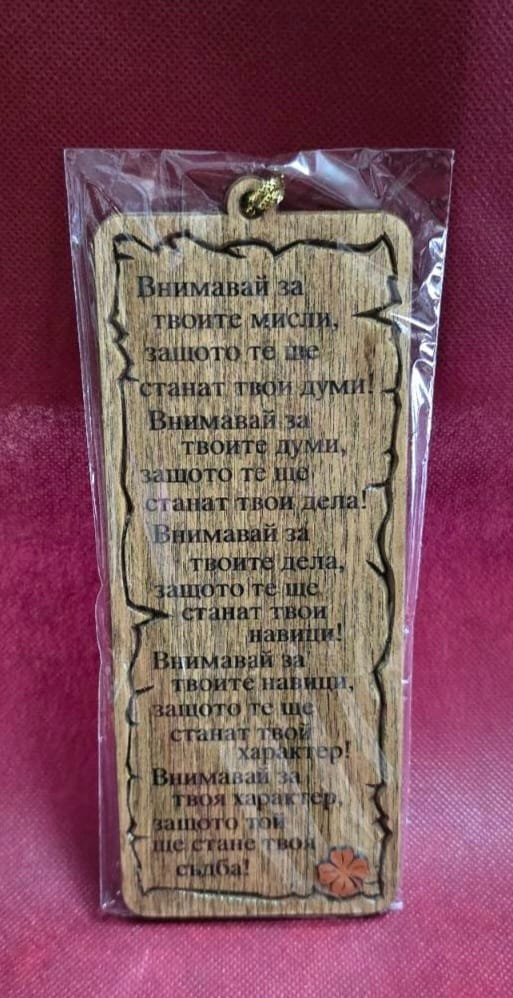 Внимавай за
твоите мисли,
защото те ще
станат твои думи!
Внимавай за
твоите думи,
защото те ще
станат твои дела!
Внимавай за
твоите дела,
защото те ще
станат твои
навици!
Внимавай за
твоите навици,
защото те ще
станат твой
характер!
Внимавай за
твоя характер,
защото той
ще стане твоя
съдба!